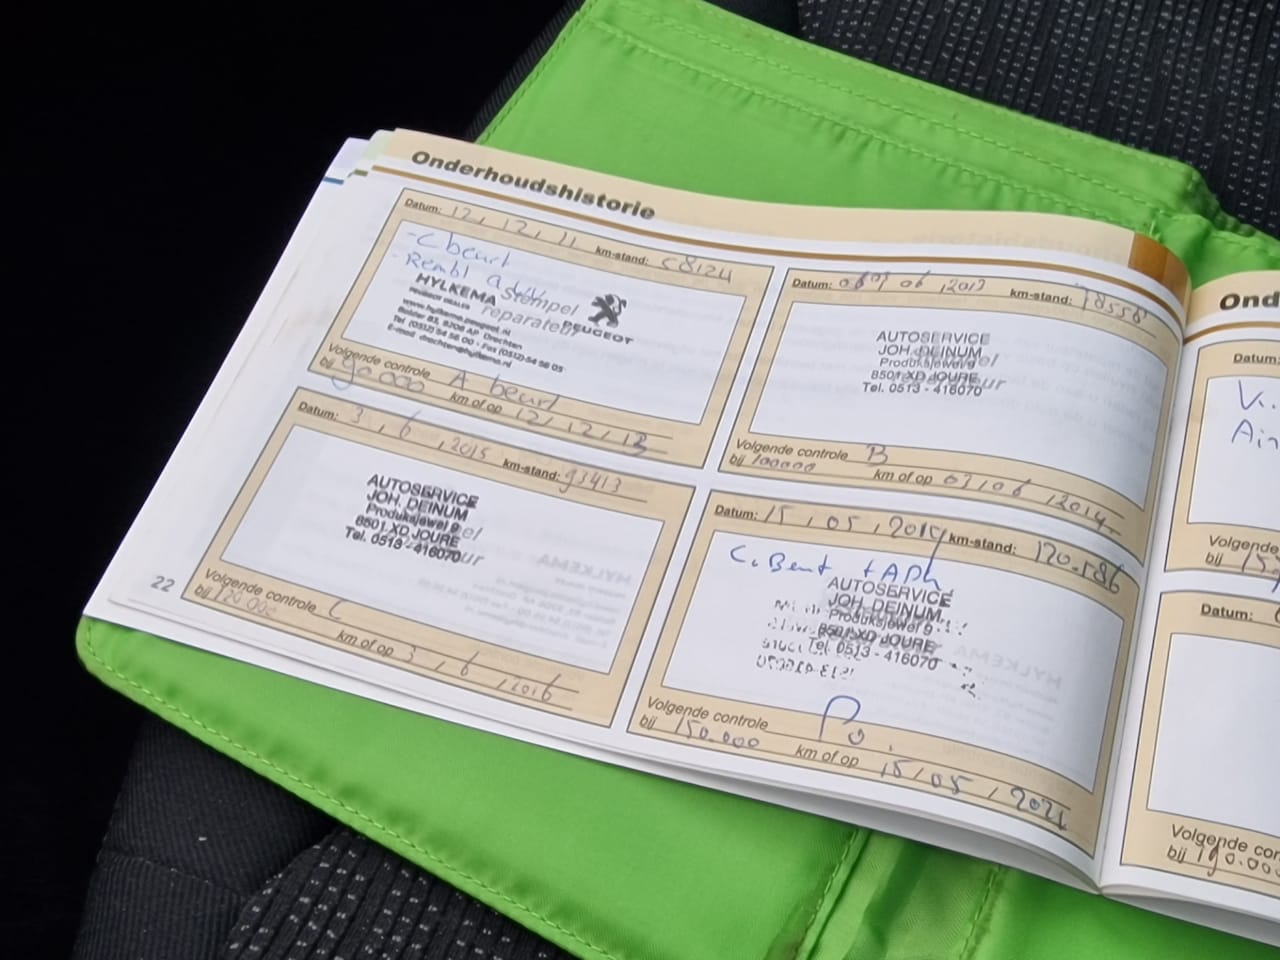 Onderhoudshistorie
Datum: 12, 12, 11 km-stand: 68124
- C beurt
- Rembl
HYLKEMA Stempel
PEUGEOT DEALER reparateur PEUGEOT
www.hylkema.peugeot.nl
Bolder 83, 9206 AP Drachten
Tel (0512) 54 56 00 - Fax (0512) 54 56 05
E-mail drachten@hylkema.nl
Volgende controle A beurt
bij 90.000 km of op 12/12/13
Datum: 06, 2013 km-stand: 78558
AUTOSERVICE
JOH. DEINUM
Produksjewei 9
8501 XD JOURE
Tel. 0513 - 416070
Volgende controle B
bij 100000 km of op 07, 06, 2014
Datum: 3, 6, 2015 km-stand: 93413
AUTOSERVICE
JOH. DEINUM
Produksjewei 9
8501 XD JOURE
Tel. 0513 - 416070
Volgende controle C
bij 120.000 km of op 3, 6, 2016
Datum: 15, 05, 2019 km-stand: 120.586
C. Beurt +
AUTOSERVICE
JOH. DEINUM
Produksjewei 9
8501 XD JOURE
Tel. 0513 - 416070
Volgende controle
bij 150.000 km of op 15/05, 2021
22
Ond
Datum:
Volgende
bij
Datum:
Volgende con
bij 190.000